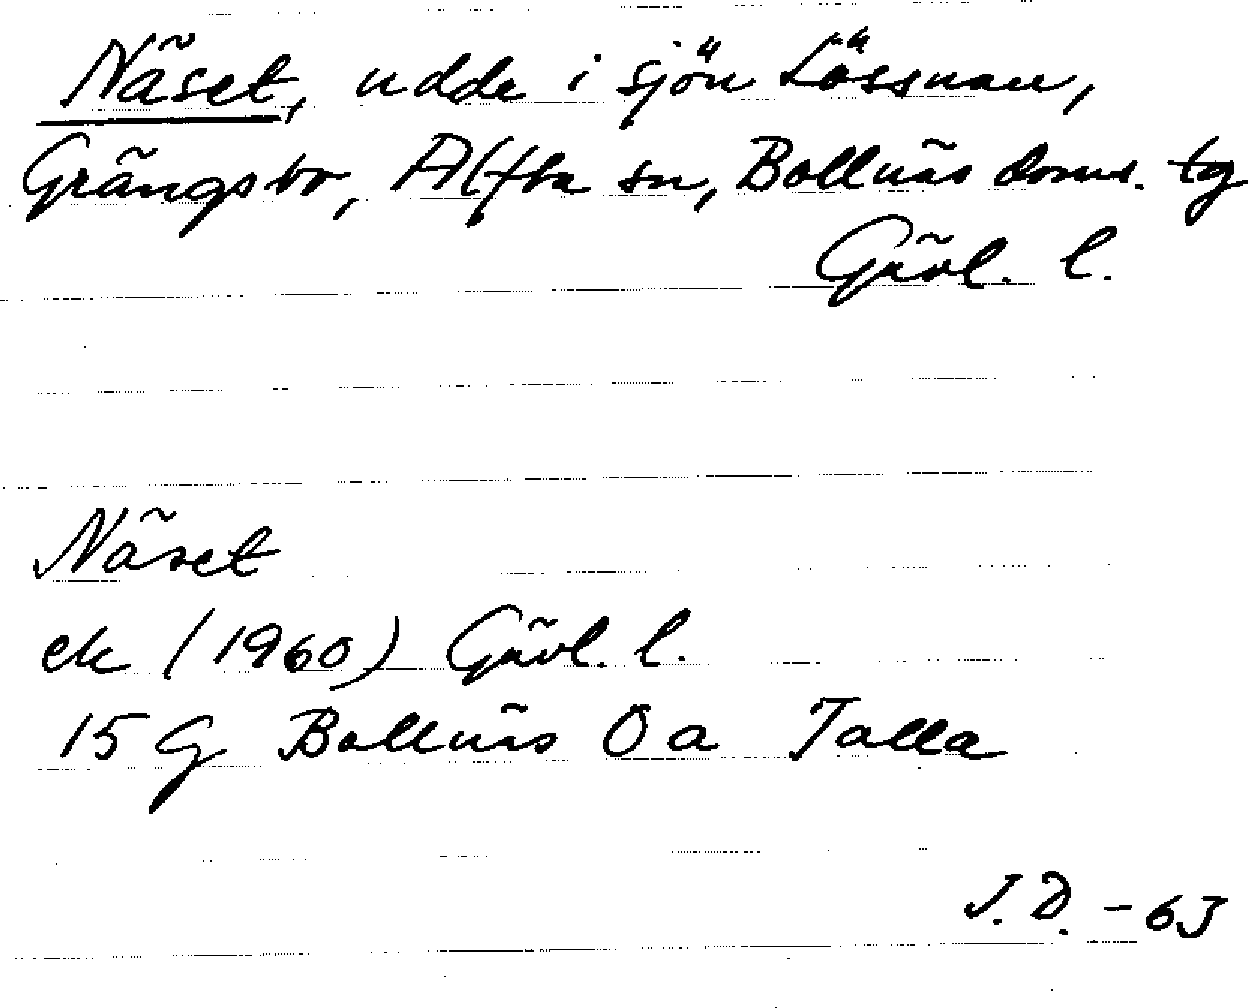 Näset, udde i sjön Lössnan,
Grängsbo, Alfta sn, Bollnäs doms. tg
Gävl. l.
Näset
ek (1960) Gävl. l.
15 G Bollnäs Ö a Talla
J.D. -63